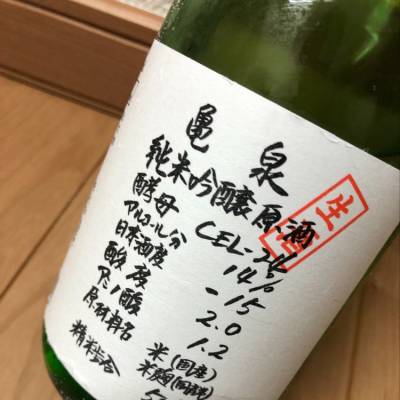 亀泉
純米吟醸原酒
生酒
酵母 CEL-24
アルコール分 14%
日本酒度 -15
酸度 2.0
アミノ酸 1.2
原材料名 米(国産)
米麹(国産米)
精米歩合